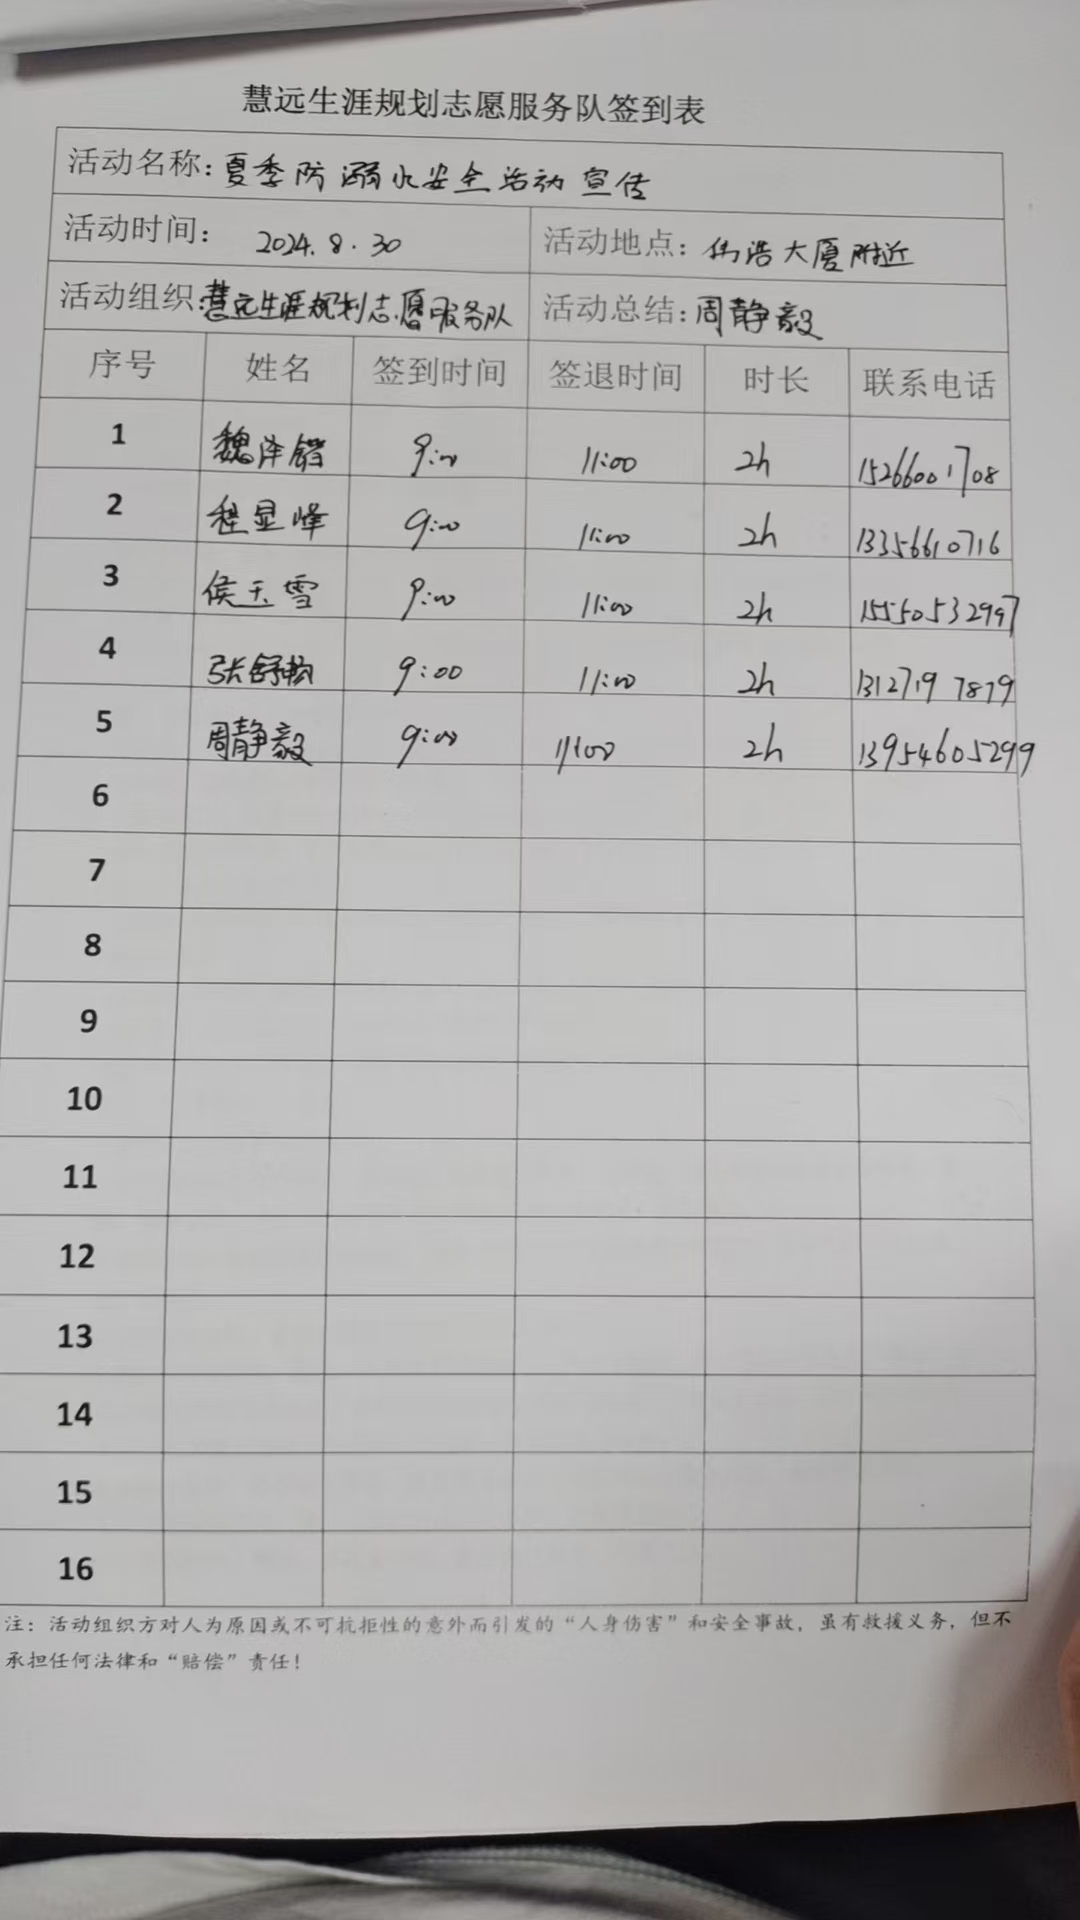 慧远生涯规划志愿服务队签到表
活动名称：夏季防溺水安全活动宣传
活动时间： 2024.8.30 活动地点：伟浩大厦附近
活动组织：慧远生涯规划志愿服务队 活动总结：周静毅
序号 姓名 签到时间 签退时间 时长 联系电话
1 魏泽锴 9:00 11:00 2h 15266001708
2 程显峰 9:00 11:00 2h 13356610716
3 侯玉雪 9:00 11:00 2h 15550532997
4 张舒畅 9:00 11:00 2h 1312719 7879
5 周静毅 9:00 11:00 2h 13954605299
6
7
8
9
10
11
12
13
14
15
16
注：活动组织方对人为原因或不可抗拒性的意外而引发的“人身伤害”和安全事故，虽有救援义务，但不
承担任何法律和“赔偿”责任！